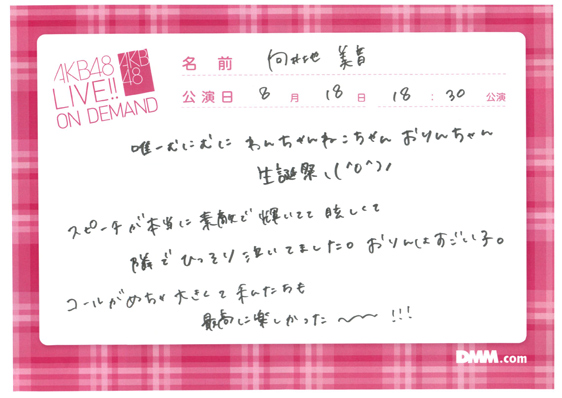 AKB48
LIVE!!
ON DEMAND
AKB
48
名前 向井地 美音
公演日 8月 18日 18:30 公演
唯一むにむに わんちゃんねこちゃん おりんちゃん
生誕祭ヽ(^o^)ノ
スピーチが本当に素敵で輝いてて眩しくて
隣でひっそり泣いてました。おりんはすごい子。
コールがめちゃ大きくて私たちも
最高に楽しかった〜〜!!!
DMM.com